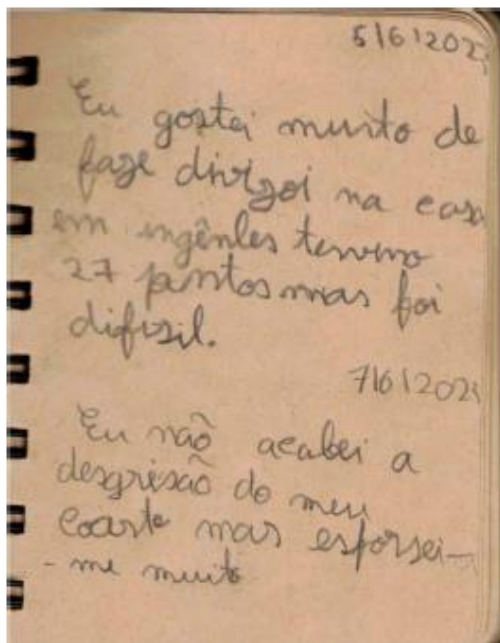 5/6/202
Eu gostei muito de
faze na casa
em ingênles
27 pontos mas foi
difísil.
7/6/202
Eu não acabei a
desgrisão do meu
mas esforsei-
-me muito